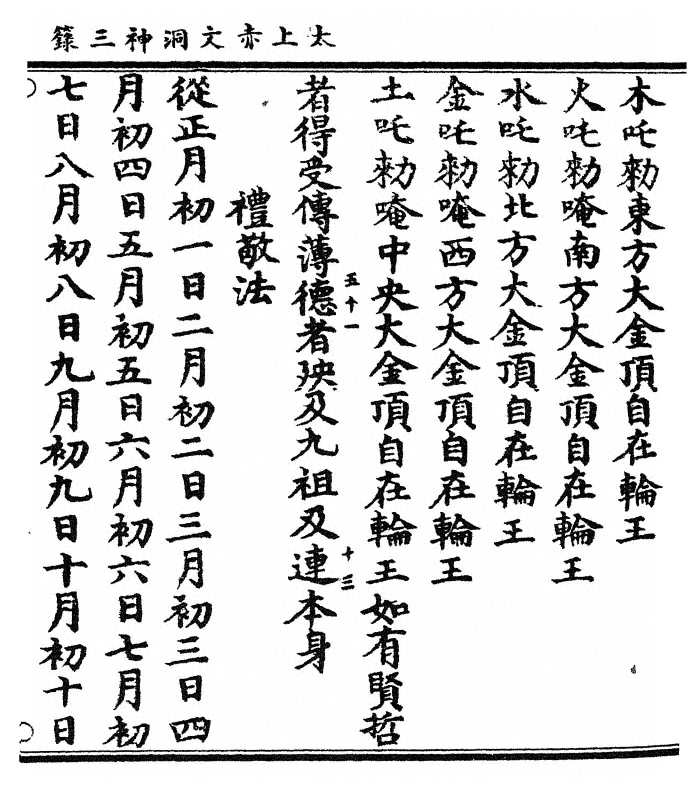 太上赤文洞神三籙
木吒勑東方大金頂自在輪王
火吒勑唵南方大金頂自在輪王
水吒勑北方大金頂自在輪王
金吒勑唵西方大金頂自在輪王
土吒勑唵中央大金頂自在輪王如有賢哲
五十一
十三
者得受傳薄德者殃及九祖及連本身
禮敬法
從正月初一日二月初二日三月初三日四
月初四日五月初五日六月初六日七月初
七日八月初八日九月初九日十月初十日